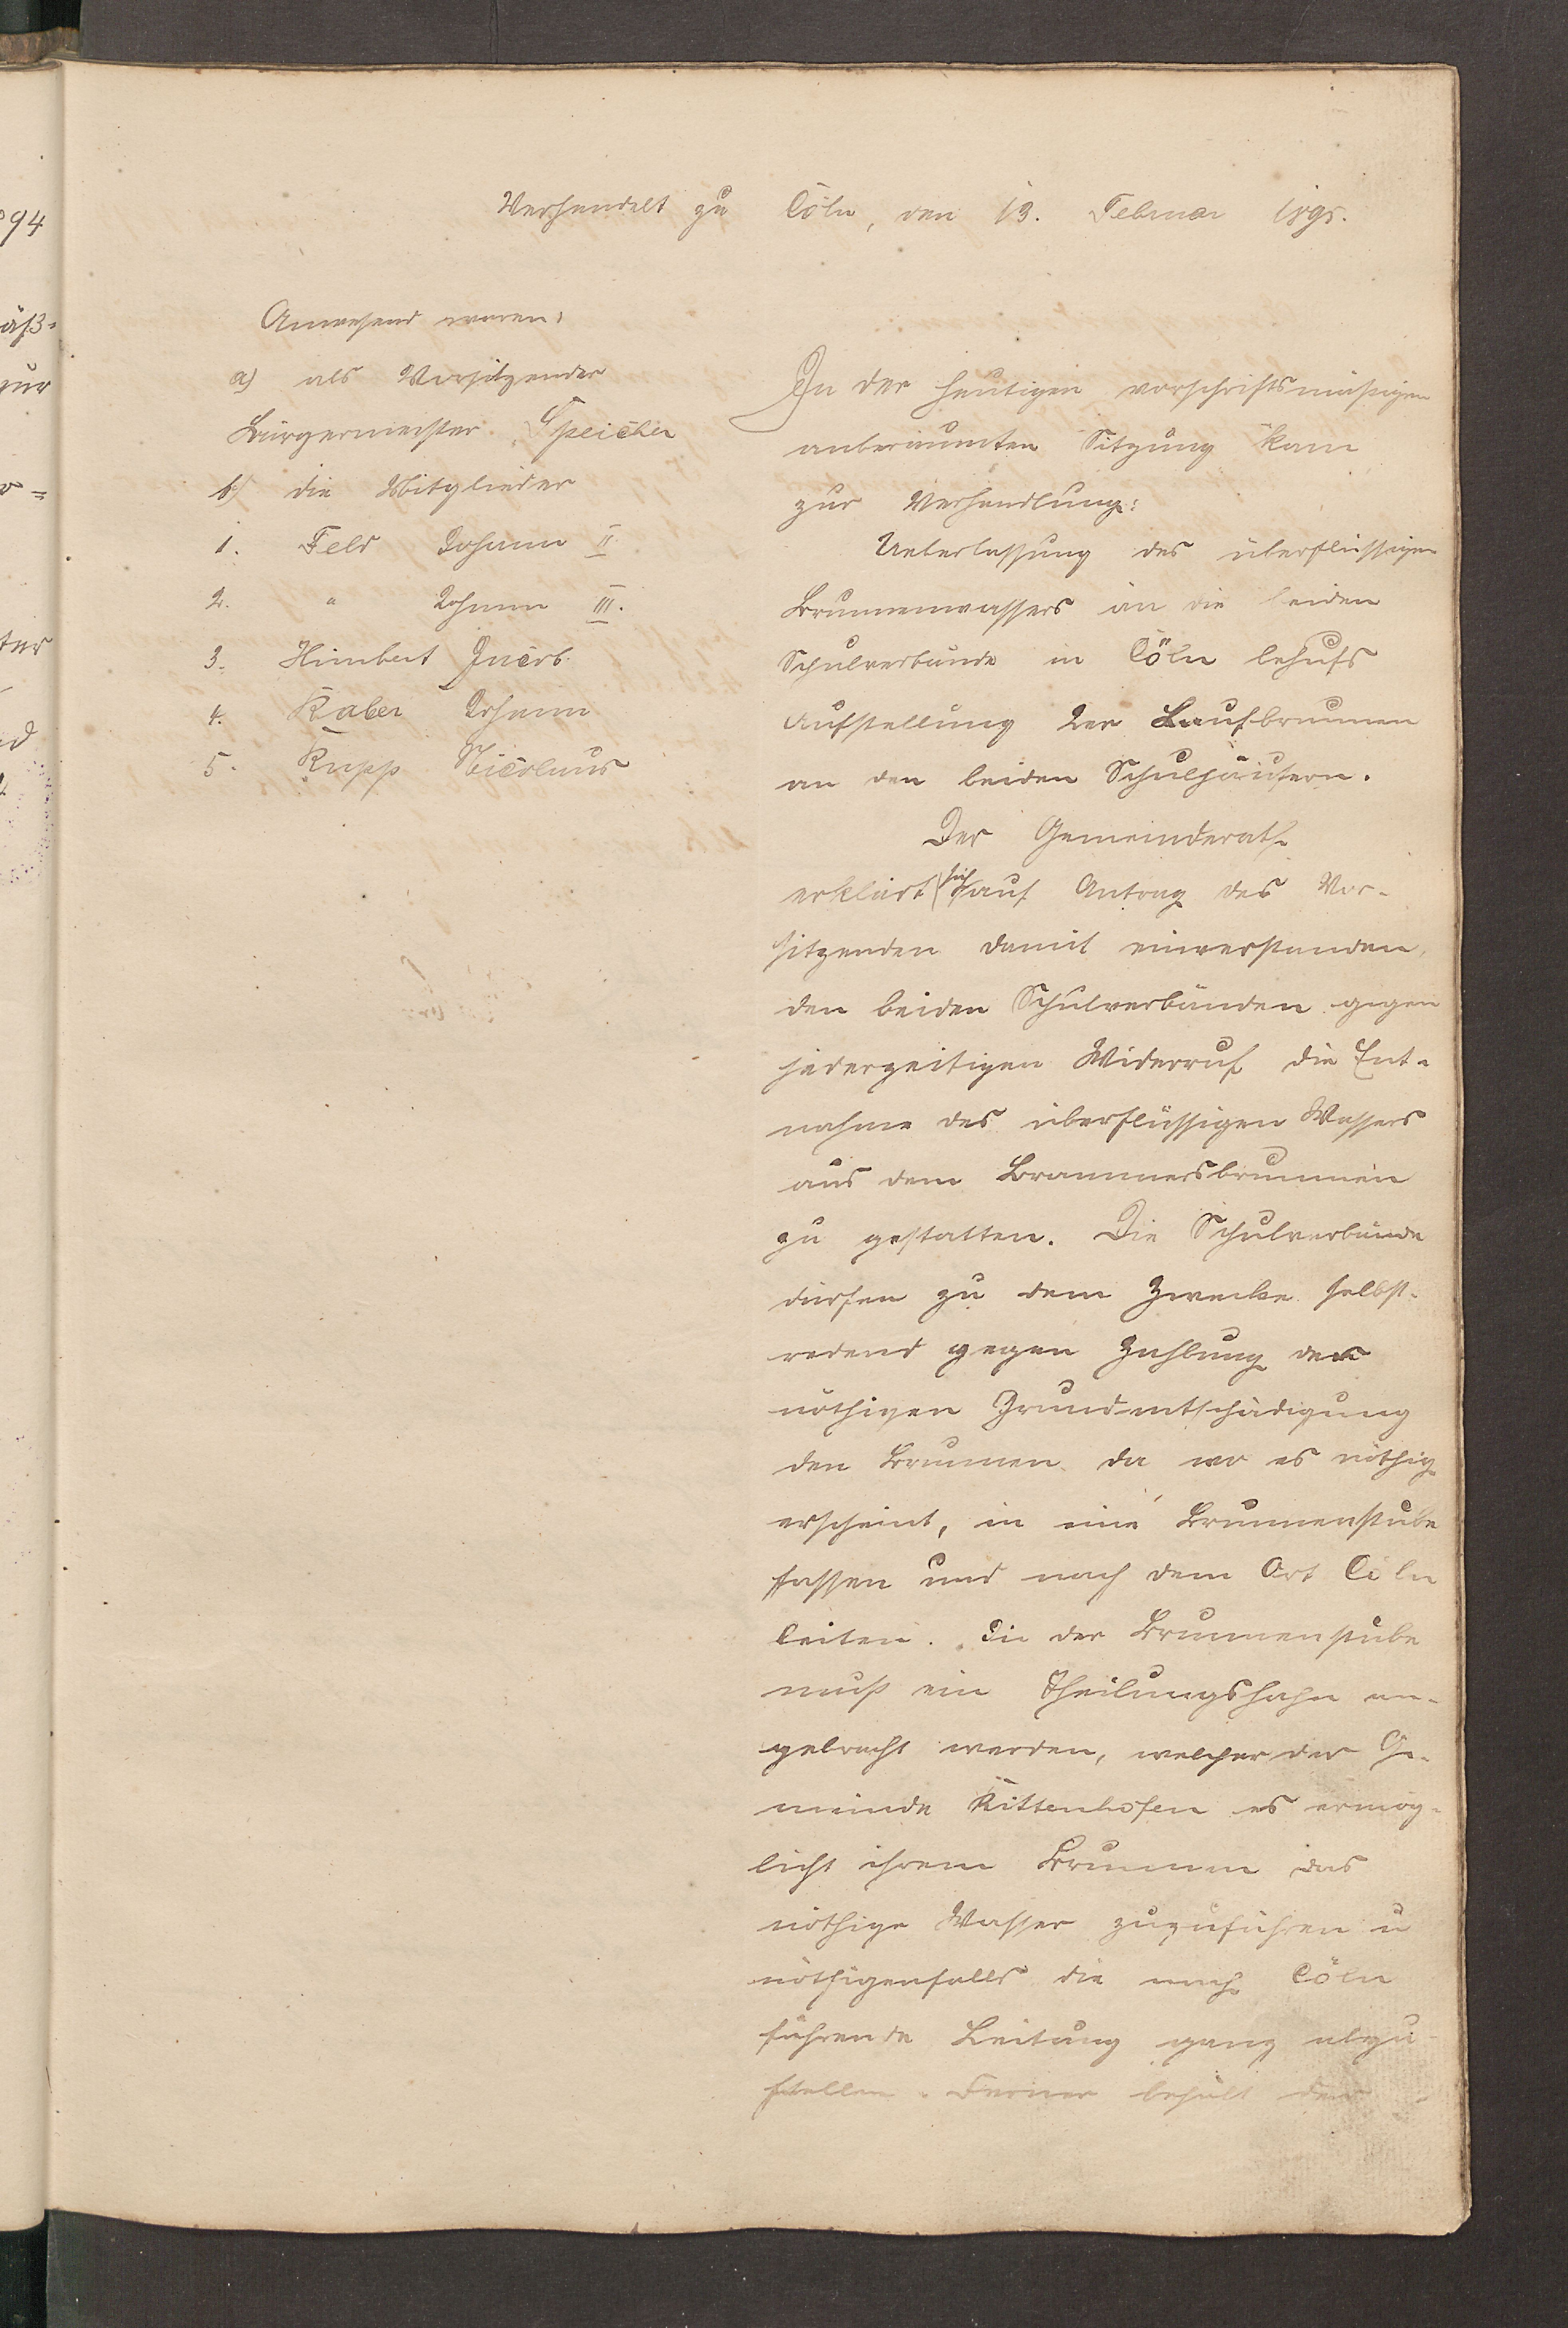 Verhandelt zu Cöln, den 13. Februar 1895.
Anwesend waren:
a) als Vorsitzender
Bürgermeister Speicher
b) die Mitglieder
1. Feld Johann II.
2. " Johann III.
3. Himbert Jacob
4. Raber Johann
5. Rupp Nicolaus
In der heutigen vorschriftsmäßigen
anberaumten Sitzung kam
zur Verhandlung:
Ueberlassung des überflüssigen
Brunnenwassers an die beiden
Schulverbände in Cöln behufs
Aufstellung der Laufbrunnen
an den beiden Schulhäusern.
Der Gemeinderath
erklärt sich auf Antrag des Vor-
sitzenden damit einverstanden,
den beiden Schulverbänden gegen
jederzeitigen Widerruf die Ent-
nahme des überflüssigen Wassers
aus dem Brammersbrunnen
zu gestatten. Die Schulverbände
dürfen zu dem Zwecke selbst-
redend gegen Zahlung der
nöthigen Grundentschädigung
den Brunnen da wo es nöthig
erscheint, in eine Brunnenstube
fassen und nach dem Ort Cöln
leiten. In der Brunnenstube
muß ein Theilungshahn an-
gebracht werden, welcher der Ge-
meinde Kittenhofen es ermög-
licht ihrem Brunnen das
nöthige Wasser zuzuführen u
nöthigenfalls die nach Cöln
führende Leitung ganz abzu-
stellen. Ferner behält der
94
äß-
zur